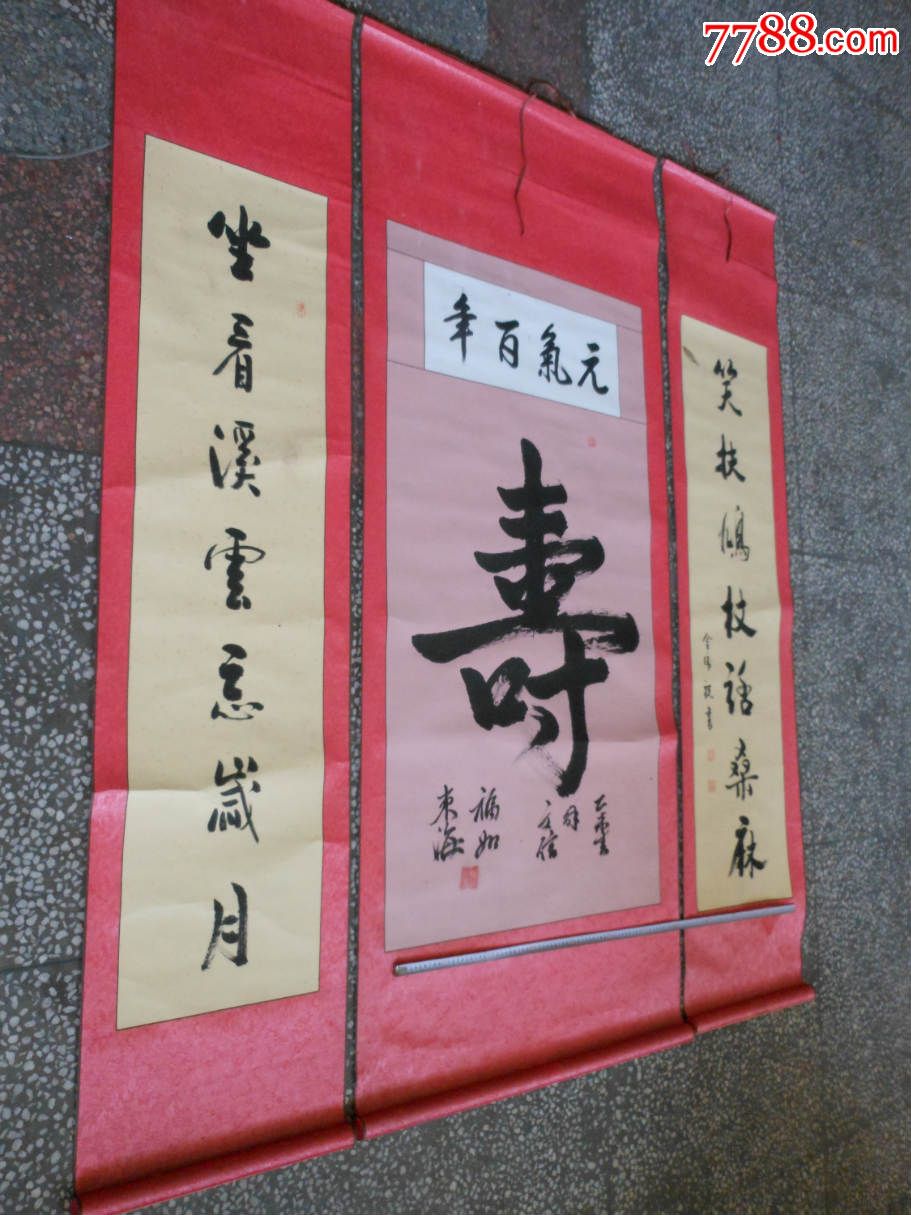 7788.com
元氣百年
壽
福如
東海
笑扶鳩杖話桑麻
坐看溪雲忘歲月